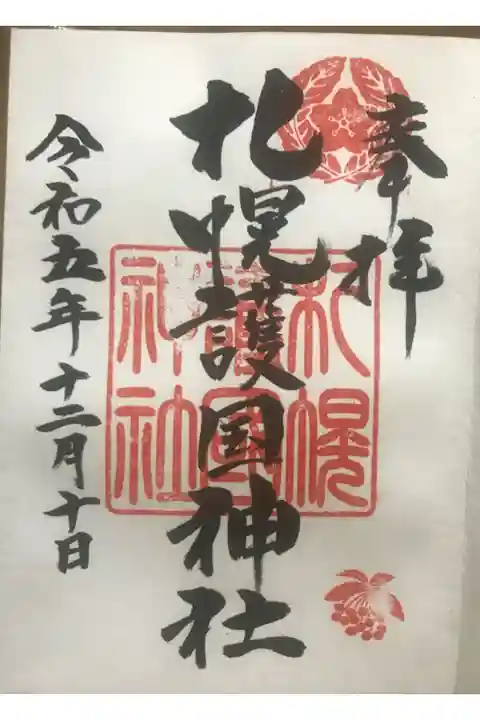 奉拝
札幌護国神社
札幌
護國
神社
令和五年十二月十日